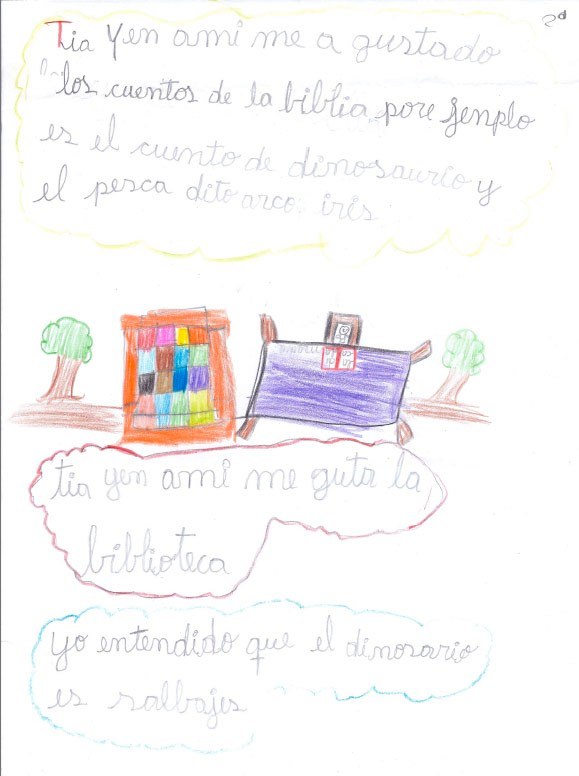 2d
Tia Yen ami me a gustado
los cuentos de la biblia pore jenplo
es el cuento de dimosaurio y
el pesca dito arco iris
tia yen ami me guta la
biblioteca
yo entendido que el dimosario
es salbajes